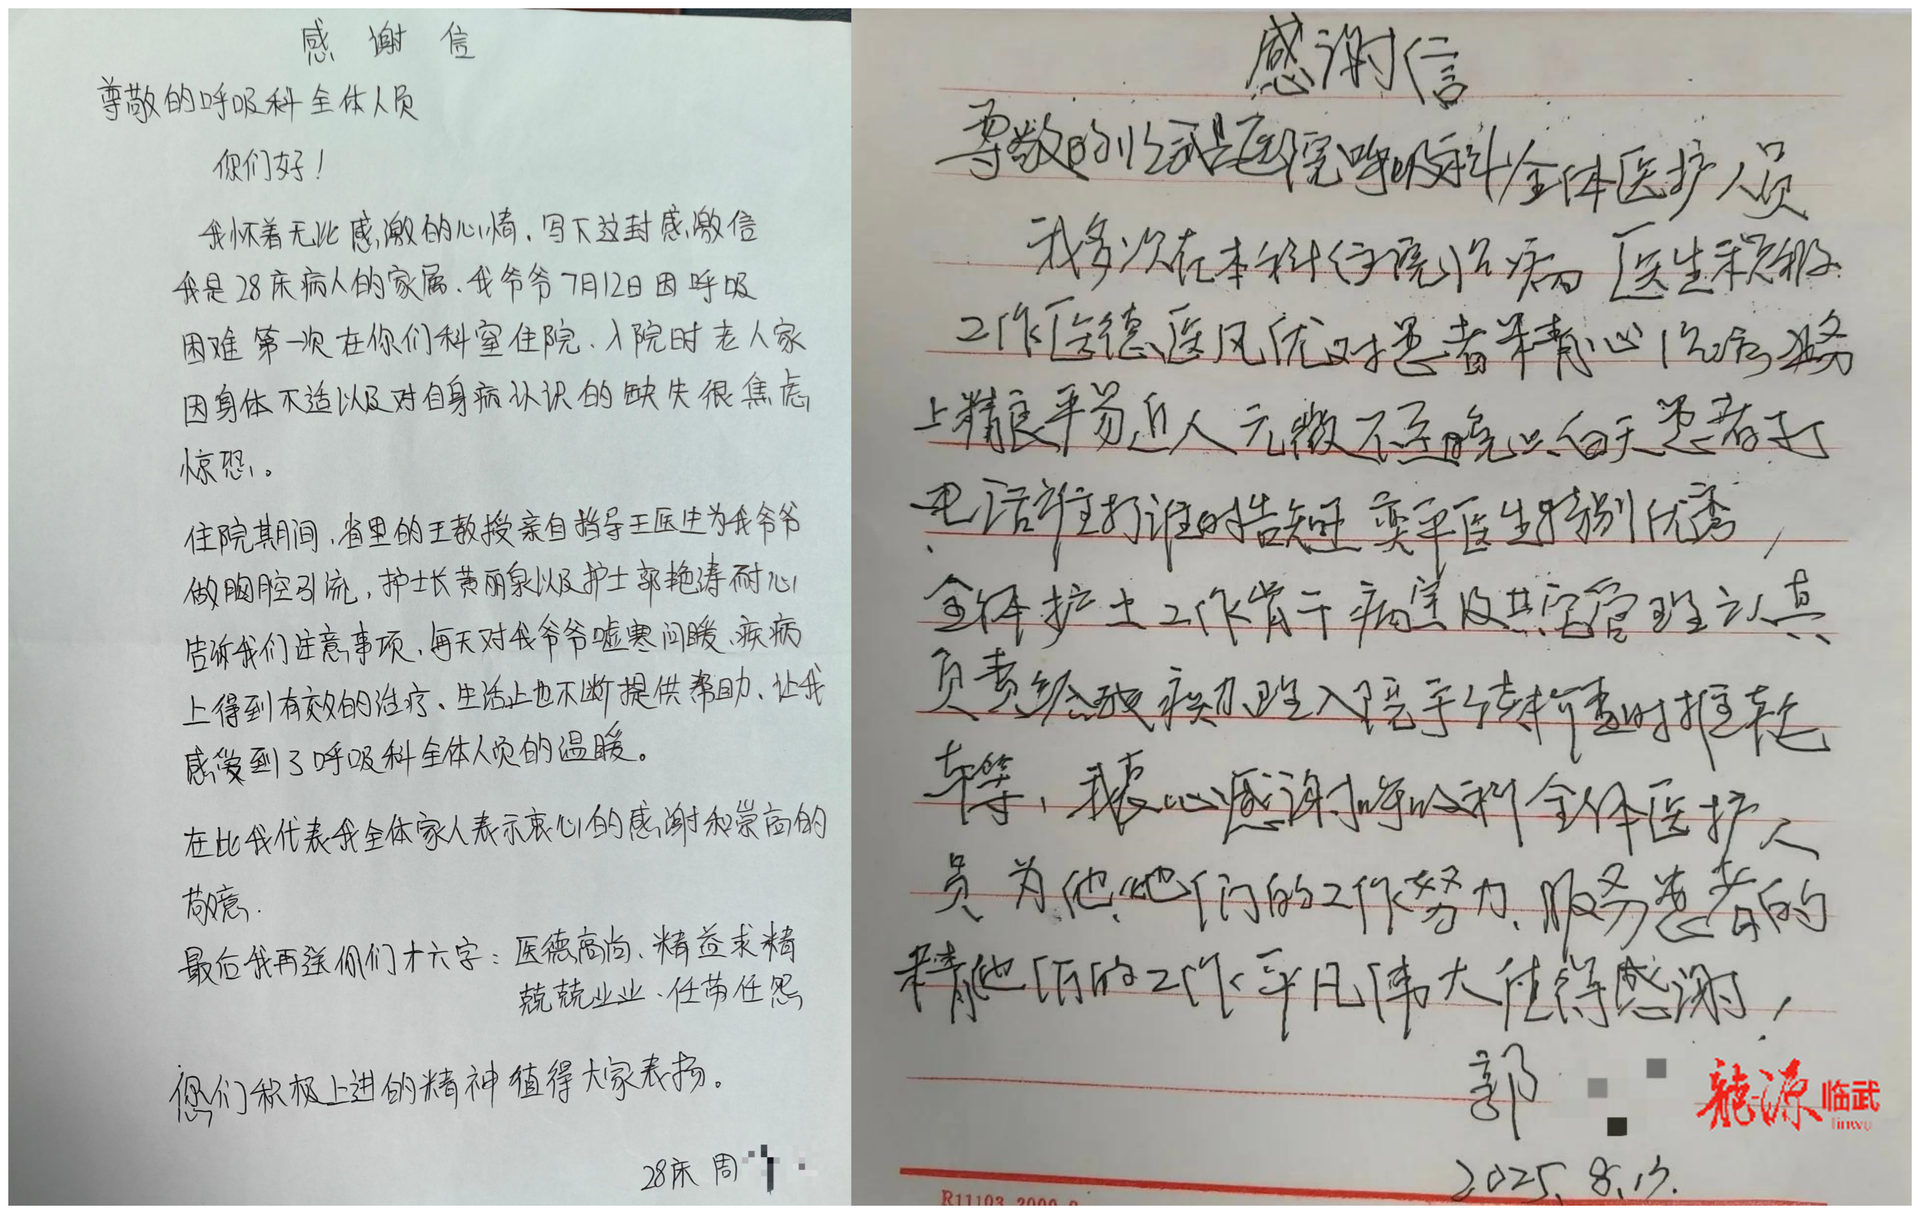 感谢信
尊敬的呼吸科全体人员
你们好！
我怀着无比感激的心情、写下这封感激信
我是28床病人的家属、我爷爷7月12日因呼吸
困难第一次在你们科室住院、入院时老人家
因身体不适以及对自身病认识的缺失很焦虑
惊恐。
住院期间，省里的王教授亲自指导王医生为我爷爷
做胸腔引流，护士长黄丽泉以及护士郭艳涛耐心
告诉我们注意事项，每天对我爷爷嘘寒问暖、疾病
上得到有效的治疗、生活上也不断提供帮助、让我
感受到了呼吸科全体人员的温暖。
在此我代表我全体家人表示衷心的感谢和崇高的
敬意.
最后我再送你们十六字：医德高尚、精益求精
兢兢业业、任劳任怨
您们积极上进的精神值得大家表扬。
28床 周
感谢信
尊敬的医院呼吸科全体医护人员
我多次在本科住院治病 医生积极
工作医德医风优对患者精心治病业务
上精良平易近人无微不至晚白天患者打
电话谁打谁时告知医生特别优秀，
全体护士工作肯干病室及其管理认真
负责给办理入院手续检查时推轮
车等，我衷心感谢呼吸科全体医护人
员为他她们的工作努力、服务患者的
精他们的工作平凡伟大值得感谢，
郭
2025.8.13.
龙源临武
linwu